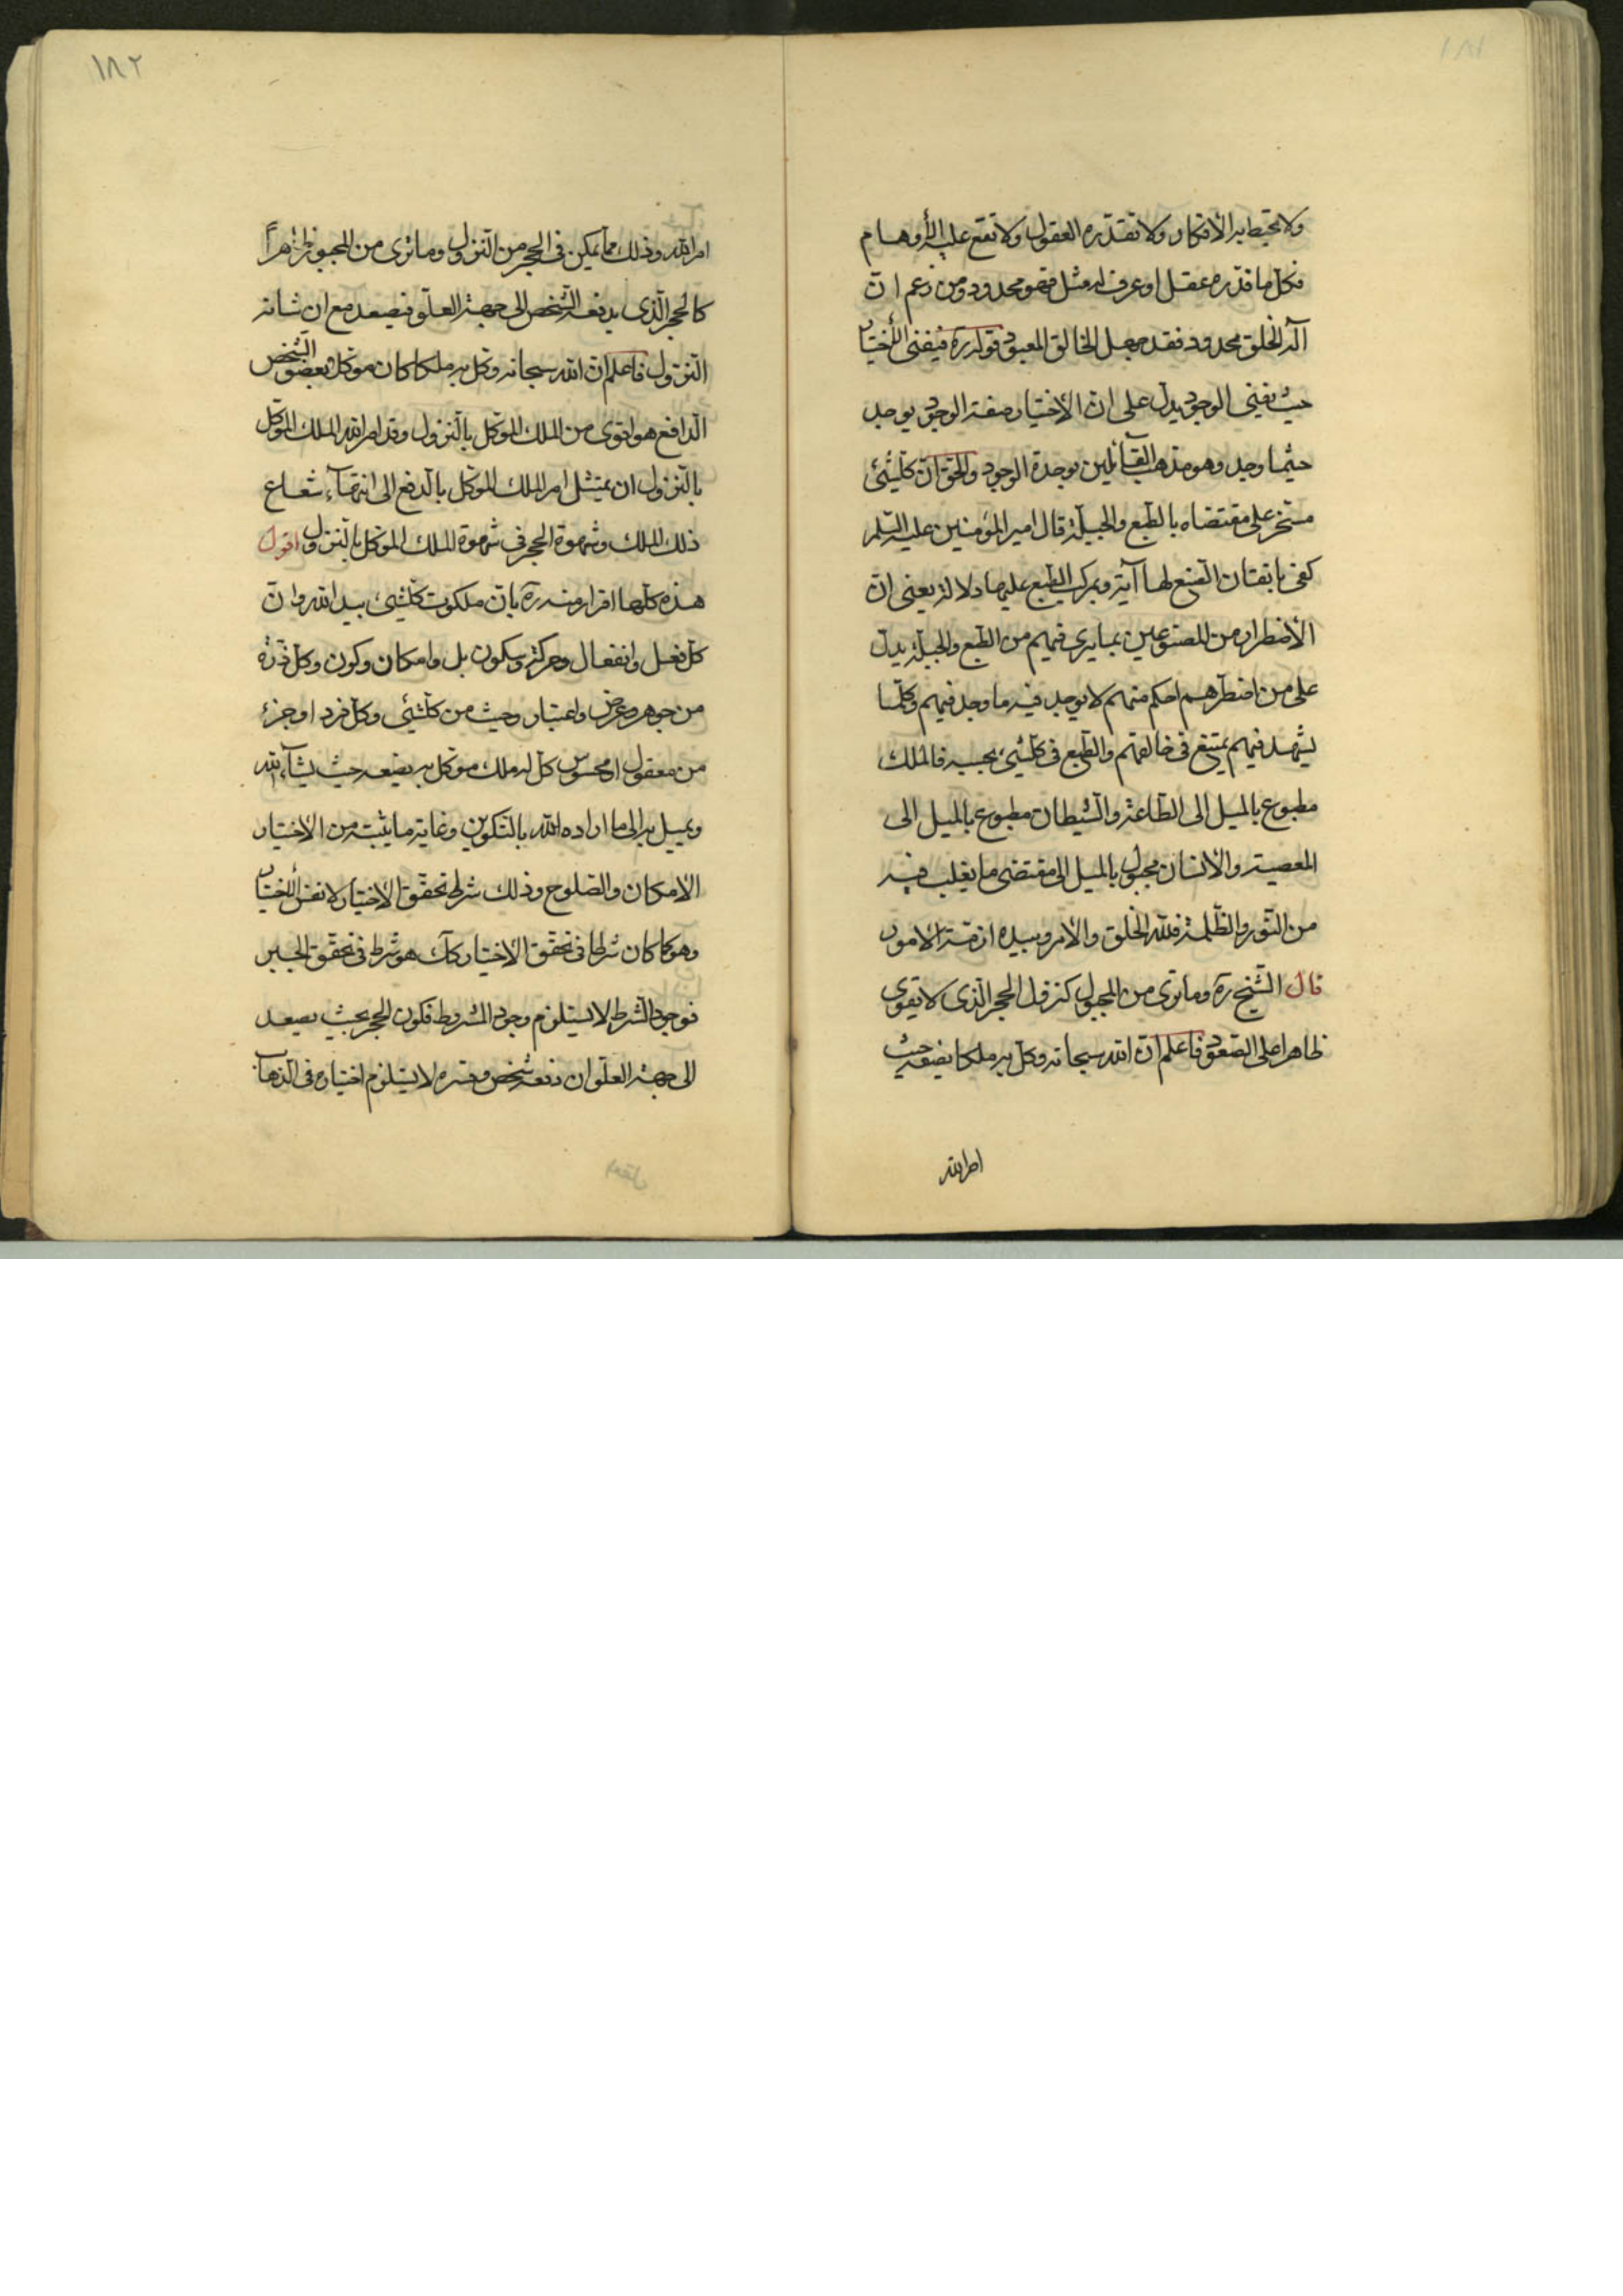 ١٨١
ولا تحيط به الأفكار ولا تقدّره العقول ولا تقع عليه الأوهام
فكل ما قدّره عقل او عرف له مثل فهو محدود ومن زعم انّ
اله الخلق محدود فقد جهل الخالق المعبود قوله ره فيفنى الأختيار
حيث يفنى الوجود يدل على ان الأختيار صفة الوجود يوجد
حيثما وجد وهو مذهب القآئلين بوحدة الوجود والحق انّ كلّشئ
مسخر على مقتضاه بالطبع والجبلّة قال امير المؤمنين عليه السّلم
كفى باتقان الصّنع لها آية وبمركب الطّبع عليها دلالة يعنى انّ
الأضطرار من المصنوعين بما يرى فيهم من الطّبع والجبلّة يدلّ
على من اضطرّهم احكم منهم لا يوجد فيه ما وجد فيهم وكلّما
يشهد فيهم يمتنع فى خالقهم والطّبع فى كلّشئ بحسبه فالملك
مطبوع بالميل الى الطّاعة والشّيطان مطبوع بالميل الى
المعصية والأنسان مجبول بالميل الى مقتضى ما يغلب فيه
من النّور والظّلمة فللّه الخلق والأمر وبيده ازمّة الامور
قال الشّيخ ره وما ترى من المجبول كنزول الحجر الّذى لا يقوى
ظاهرا على الصّعود فاعلم انّ الله سبحانه وكّل به ملكا يضعه حيث
امر الله
١٨٢
امر الله وذلك ممّا يمكن فى الحجر من النّزول وما ترى من المجبور ظاهراً
كالحجر الّذى يدفعه الشّخص الى جهة العلّو فيصعد مع ان شانه
النّزول فاعلم انّ الله سبحانه وكّل به ملكا كان موكّل بعضو الشّخص
الدّافع هو اقوى من الملك الموكّل بالنّزول وقد امر الله الملك الموكّل
بالنّزول ان يمتثل امر الملك الموكّل بالدّفع الى انتهآء شعاع
ذلك الملك وشهوة الحجر فى شهوة الملك الموكّل بالنّزول اقول
هذه كلّها اقرار منه ره بانّ ملكوت كلّشئ بيد الله وانّ
كلّ فعل وانفعال وحركة وسكون بل وامكان وكون وكلّ ذرّة
من جوهر وعرض واعتبار وحيث من كلّشئ وكلّ فرد او جزء
من معقول او محسوس كلّ له ملك موكّل به يضعه حيث يشآء الله
ويميل به الى ما اراده الله بالتّكوين وغاية ما يثبت من الاختيار
الامكان والصّلوح وذلك شرط تحقّق الأختيار لا نفس الأختيار
وهو كما كان شرطا فى تحقّق الأختيار كك هو شرط فى تحقّق الجبر
فوجود الشّرط لا يستلزم وجود المشروط فكون الحجر بحيث يصعد
الى جهة العلّو ان دفعه شخص وقسره لا يستلزم اختياره فى الذّهاب